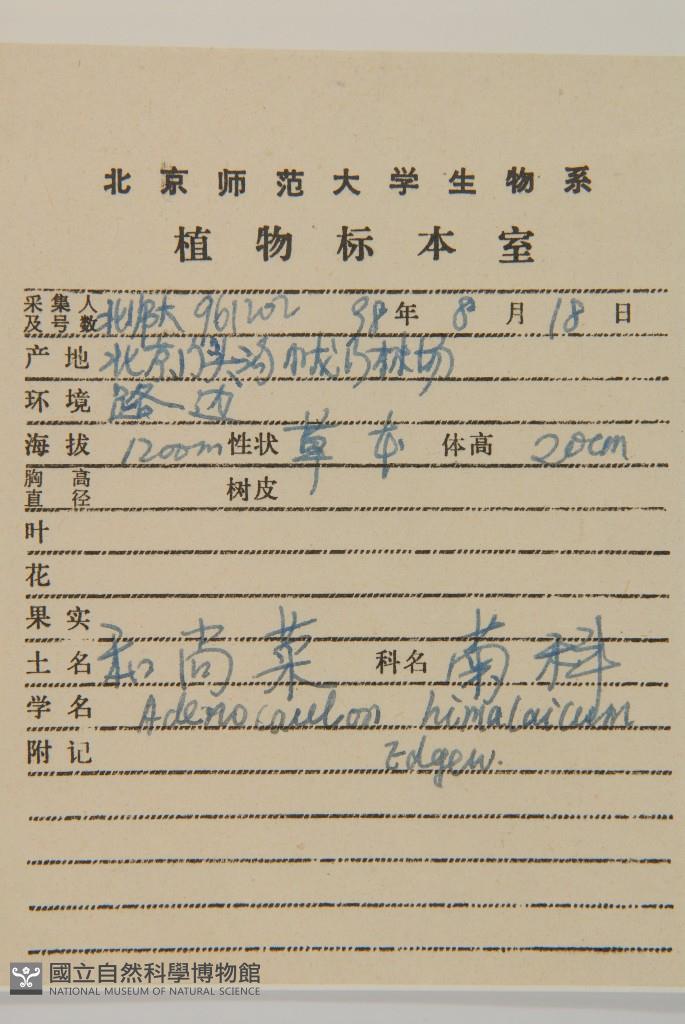 北京师范大学生物系
植物标本室
采集人及号数 北师大 961202 98年 8月 18日
产地 北京门头沟 林场
环境 路边
海拔 1200m 性状 草本 体高 20cm
胸高直径 树皮
叶
花
果实
土名 和尚菜 科名 菊科
学名 Adenocaulon himalaicum
附记 Edgew.
國立自然科學博物館
NATIONAL MUSEUM OF NATURAL SCIENCE